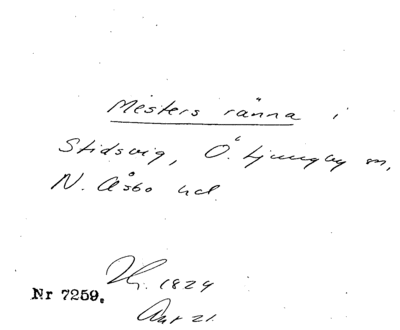 Mesters ränna i
Stidsvig, Ö. Ljungby sn,
N. Åsbo hd
1824
Nr 7259.
21.